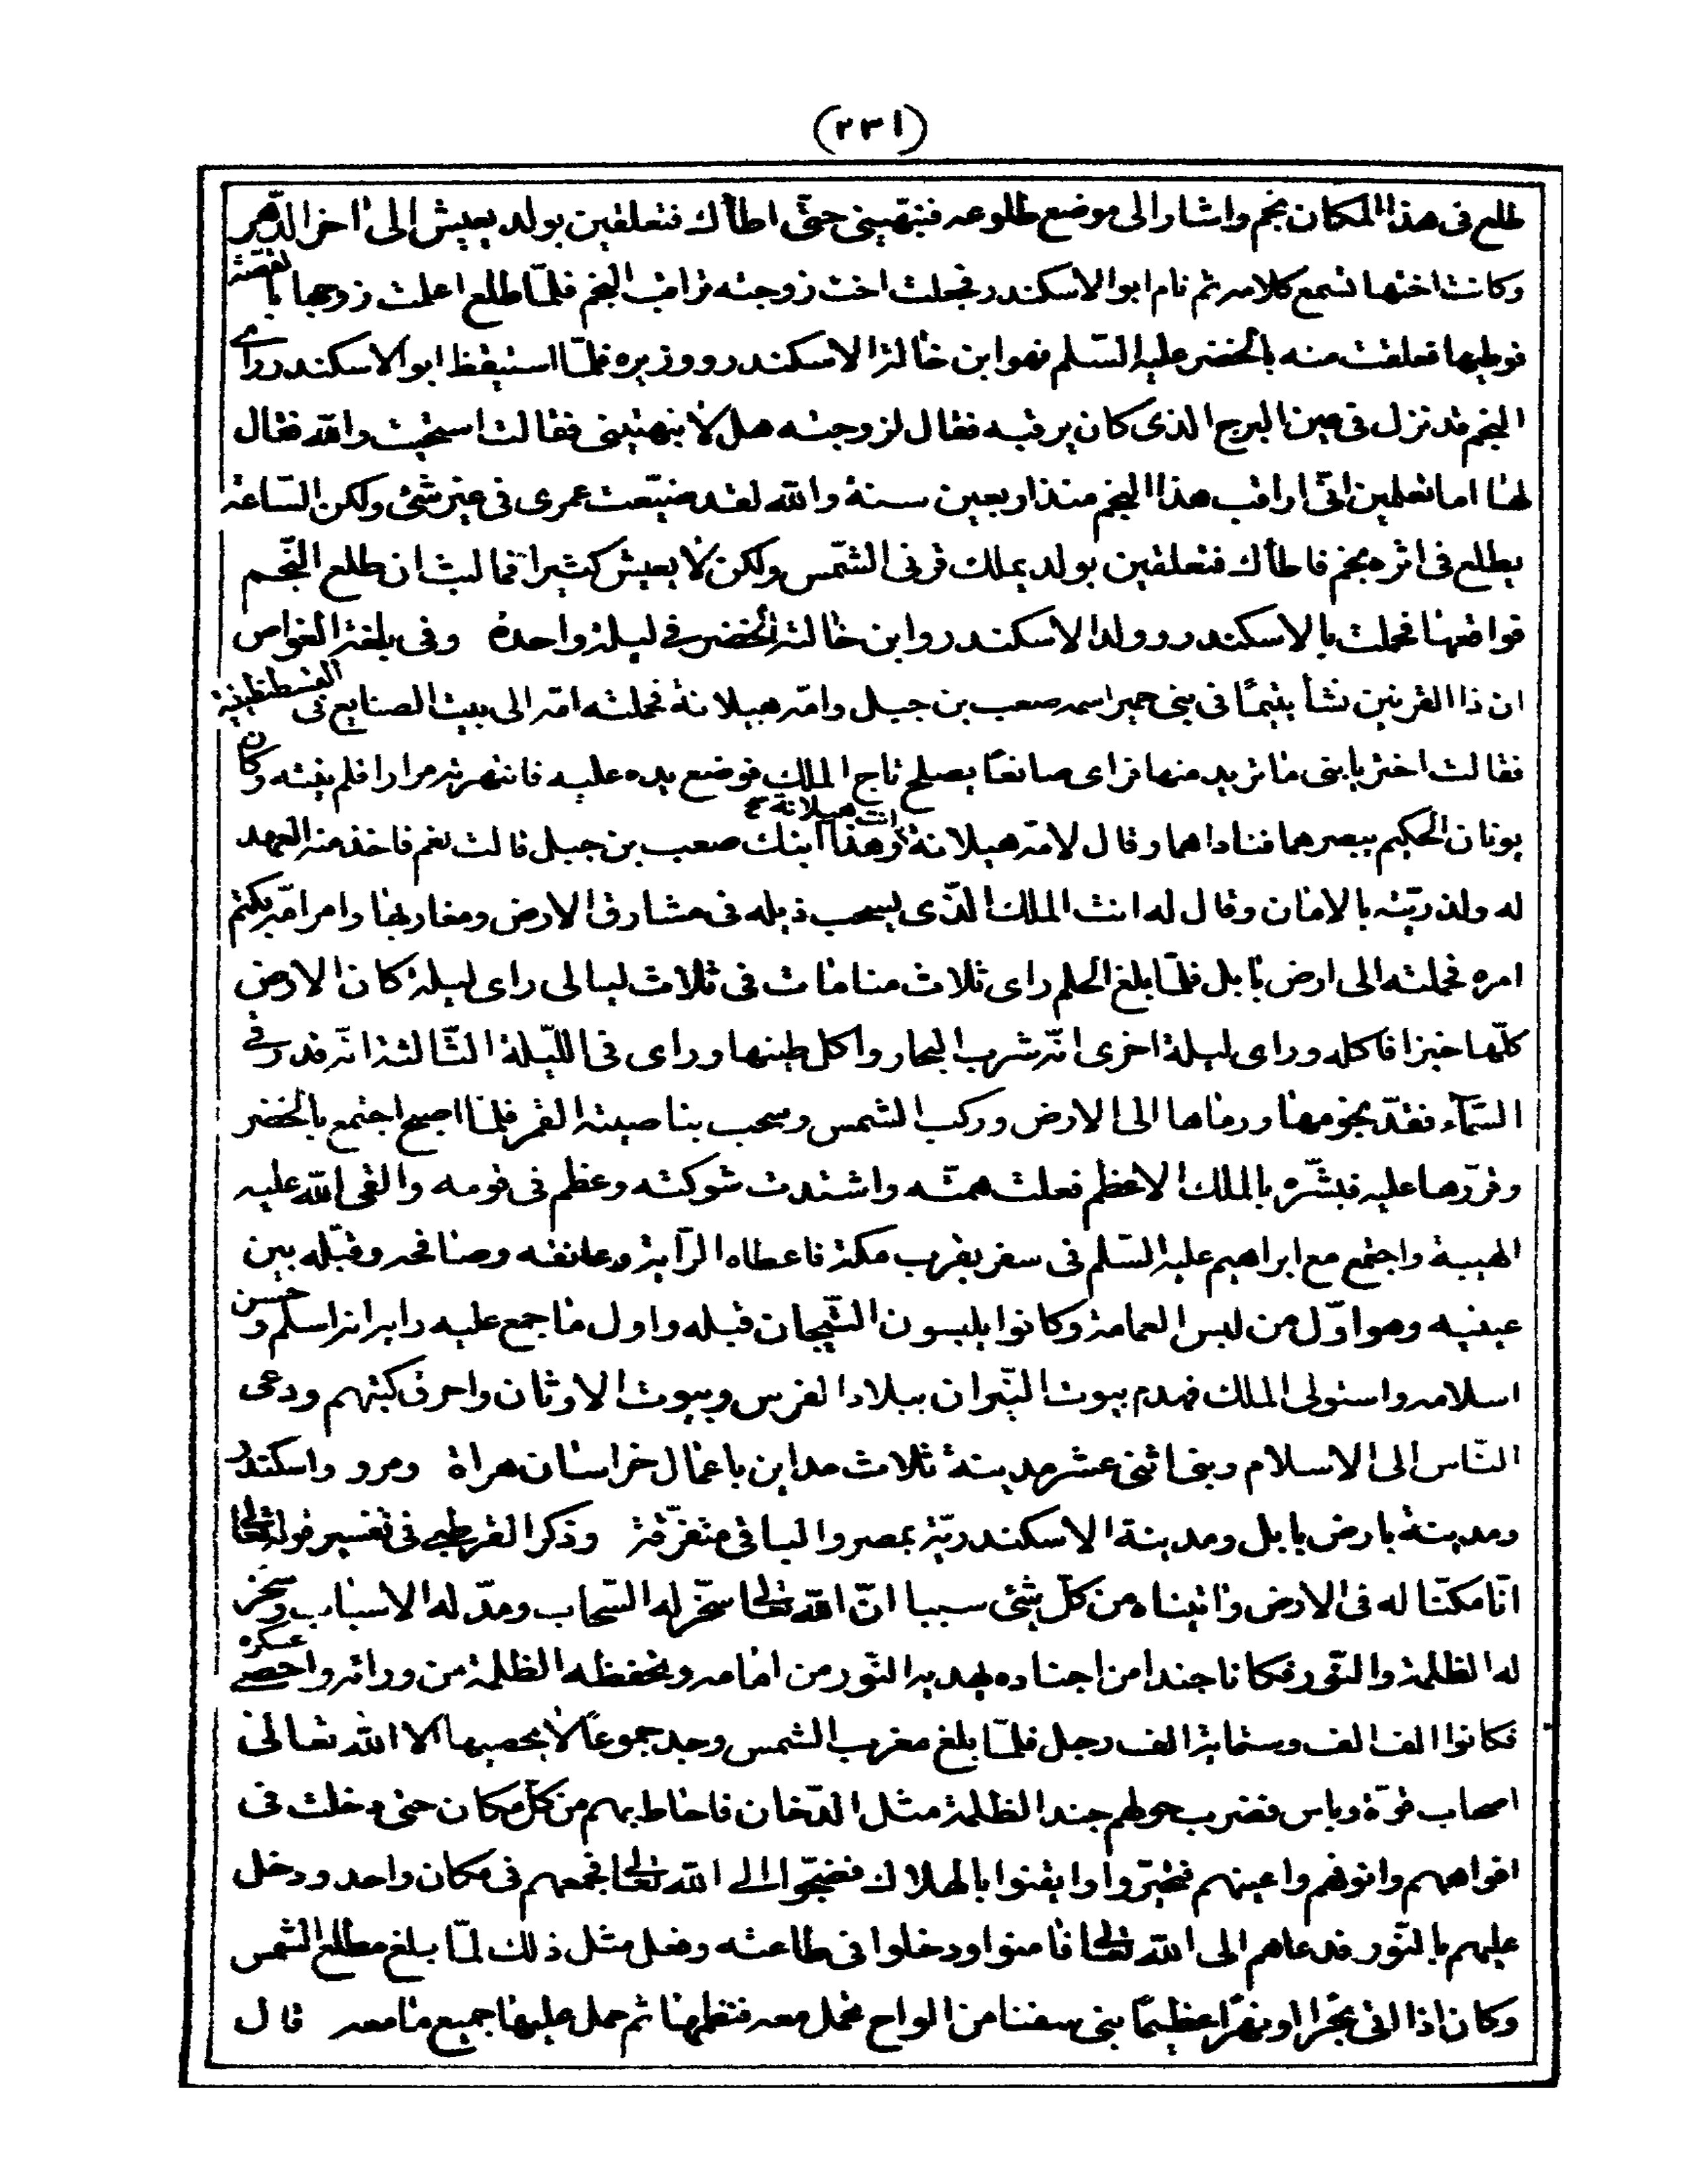 (٢٣١)
طلع فى هذا المكان نجم واشار الى موضع طلوعه فنبّهينى حتّى اطأك فتعلقين بولد يعيش الى اخر الدّهر
وكانت اختها تسمع كلامه ثم نام ابو الاسكندر فجعلت اخت زوجته تراقب النجم فلمّا طلع اعلمت زوجها بالقصّة
فوطيها فعلقت منه بالخضر عليه السّلم فهو ابن خالة الاسكندر ووزيره فلمّا استيقظ ابو الاسكندر راى
النجم قد نزل فى عين البرج الذى كان يرقبه فقال لزوجته هل لا نبهتينى فقالت استحيت والله فقال
لها اما تعلمين انّى اراقب هذا النجم منذ اربعين سنة والله لقد ضيّعت عمرى فى غير شئ ولكن السّاعة
يطلع فى اثره نجم فاطأك فتعلقين بولد يملك قرنى الشّمس ولكن لا يعيش كثيرا فما لبث ان طلع النّجم
فواقعها فحملت بالاسكندر وولد الاسكندر وابن خالته الخضر فى ليلة واحدة وفى بلغة الغواص
ان ذا القرنين نشأ يتيمًا فى بنى حمير اسمه صعب بن جبل وامّه هيلانة فحملته امّه الى بيت الصنايع فى القسطنطينية
فقالت اختر يا بنى ما تريد منها فراى صانعًا يصلح تاج الملك فوضع يده عليه فانتهرته مرارا فلم ينته وكان
يونان الحكيم يبصرهما فناداهما وقال لامّه هيلانة انت هيلانة وهذا ابنك صعب بن جبل قالت نعم فاخذ منه العهد
له ولذريّته بالامان وقال له انت الملك الذّى يسحب ذيله فى مشارق الارض ومغاربها وامر امّه بكتم
امره فحملته الى ارض بابل فلمّا بلغ الحلم راى ثلاث منامات فى ثلاث ليالى راى ليلة كان الارض
كلّها خبزا فاكله وراى ليلة اخرى انّه شرب البحار واكل طينها وراى فى اللّيلة الثّالثة انّه قد رقى
السّمآء فقدّ نجومها ورماها الى الارض وركب الشمس وسحب بناصية القمر فلمّا اصبح اجتمع بالخضر
وقرّرها عليه فبشّره بالملك الاعظم فعلت همّته واشتدت شوكته وعظم فى قومه والقى الله عليه
الهيبة واجتمع مع ابراهيم عليه السّلم فى سفر بقرب مكة فاعطاه الرّاية وعانقه وصافحه وقبّله بين
عينيه وهو اوّل من لبس العمامة وكانوا يلبسون التّيجان قبله واول ما جمع عليه رايه انه اسلم وحسن
اسلامه واستولى الملك فهدم بيوت النّيران ببلاد الفرس وبيوت الاوثان واحرق كتبهم ودعى
النّاس الى الاسلام وبنى اثنى عشر مدينة ثلاث مداين باعمال خراسان هراة ومرو واسكندر
ومدينة بارض بابل ومدينة الاسكندريّة بمصر والباقى متفرّقة وذكر القرطبى فى تفسير قوله تعالى
انّا مكنّا له فى الارض واتيناه من كلّ شئى سببا انّ الله تعالى سخّر له السّحاب ومدّ له الاسباب وسخر
له الظلمة والنّور فكانا جندا من اجناده يهديه النّور من امامه وتحفظه الظلمة من ورائه واحصى عسكره
فكانوا الف الف وستماية الف رجل فلمّا بلغ مغرب الشمس وجد جموعًا لا يحصيها الا الله تعالى
اصحاب قوّة وباس فضرب حولهم جند الظلمة مثل الدّخان فاحاط بهم من كلّ مكان حتى دخلت فى
افواههم وانوفهم واعينهم فتحيّروا وايقنوا بالهلاك فضجّوا الى الله تعالى فجمعهم فى مكان واحد ودخل
عليهم بالنّور فدعاهم الى الله تعالى فامنوا ودخلوا فى طاعته وفعل مثل ذلك لمّا بلغ مطلع الشمس
وكان اذا اتى بحرًا او نهرًا عظيمًا بنى سفنا من الواح تحمل معه فنظمها ثم حمل عليها جميع ما معه قال